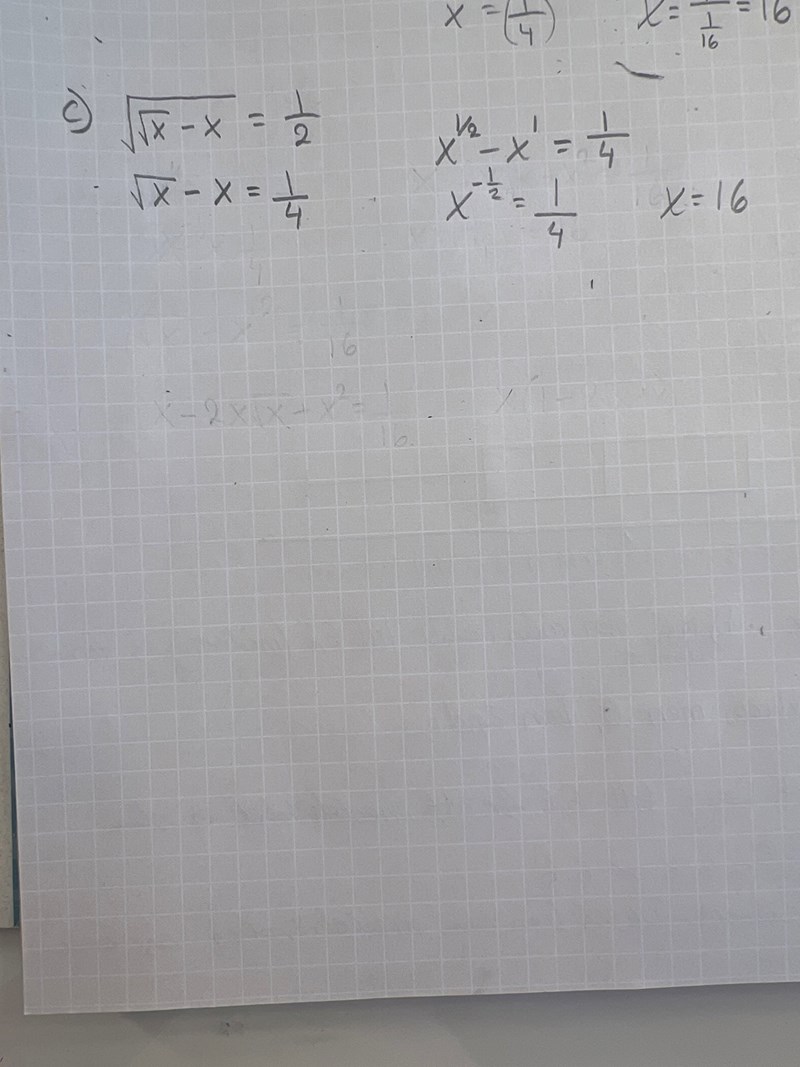 x = (1/4) x = 1/(1/16) = 16
c) √(√x - x) = 1/2
√x - x = 1/4
x^(1/2) - x^1 = 1/4
x^(-1/2) = 1/4 x = 16
16
x - 2x√x + x² = 1/16